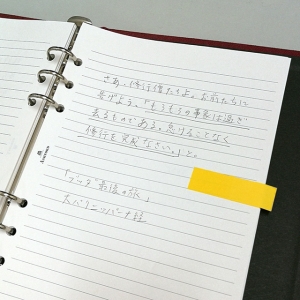 さあ、修行僧たちよ。お前たちに
告げよう、「もろもろの事象は過ぎ
去るものである。怠けることなく
修行を完成なさい。」と。
「ブッダ最後の旅」
大パリニッバーナ経